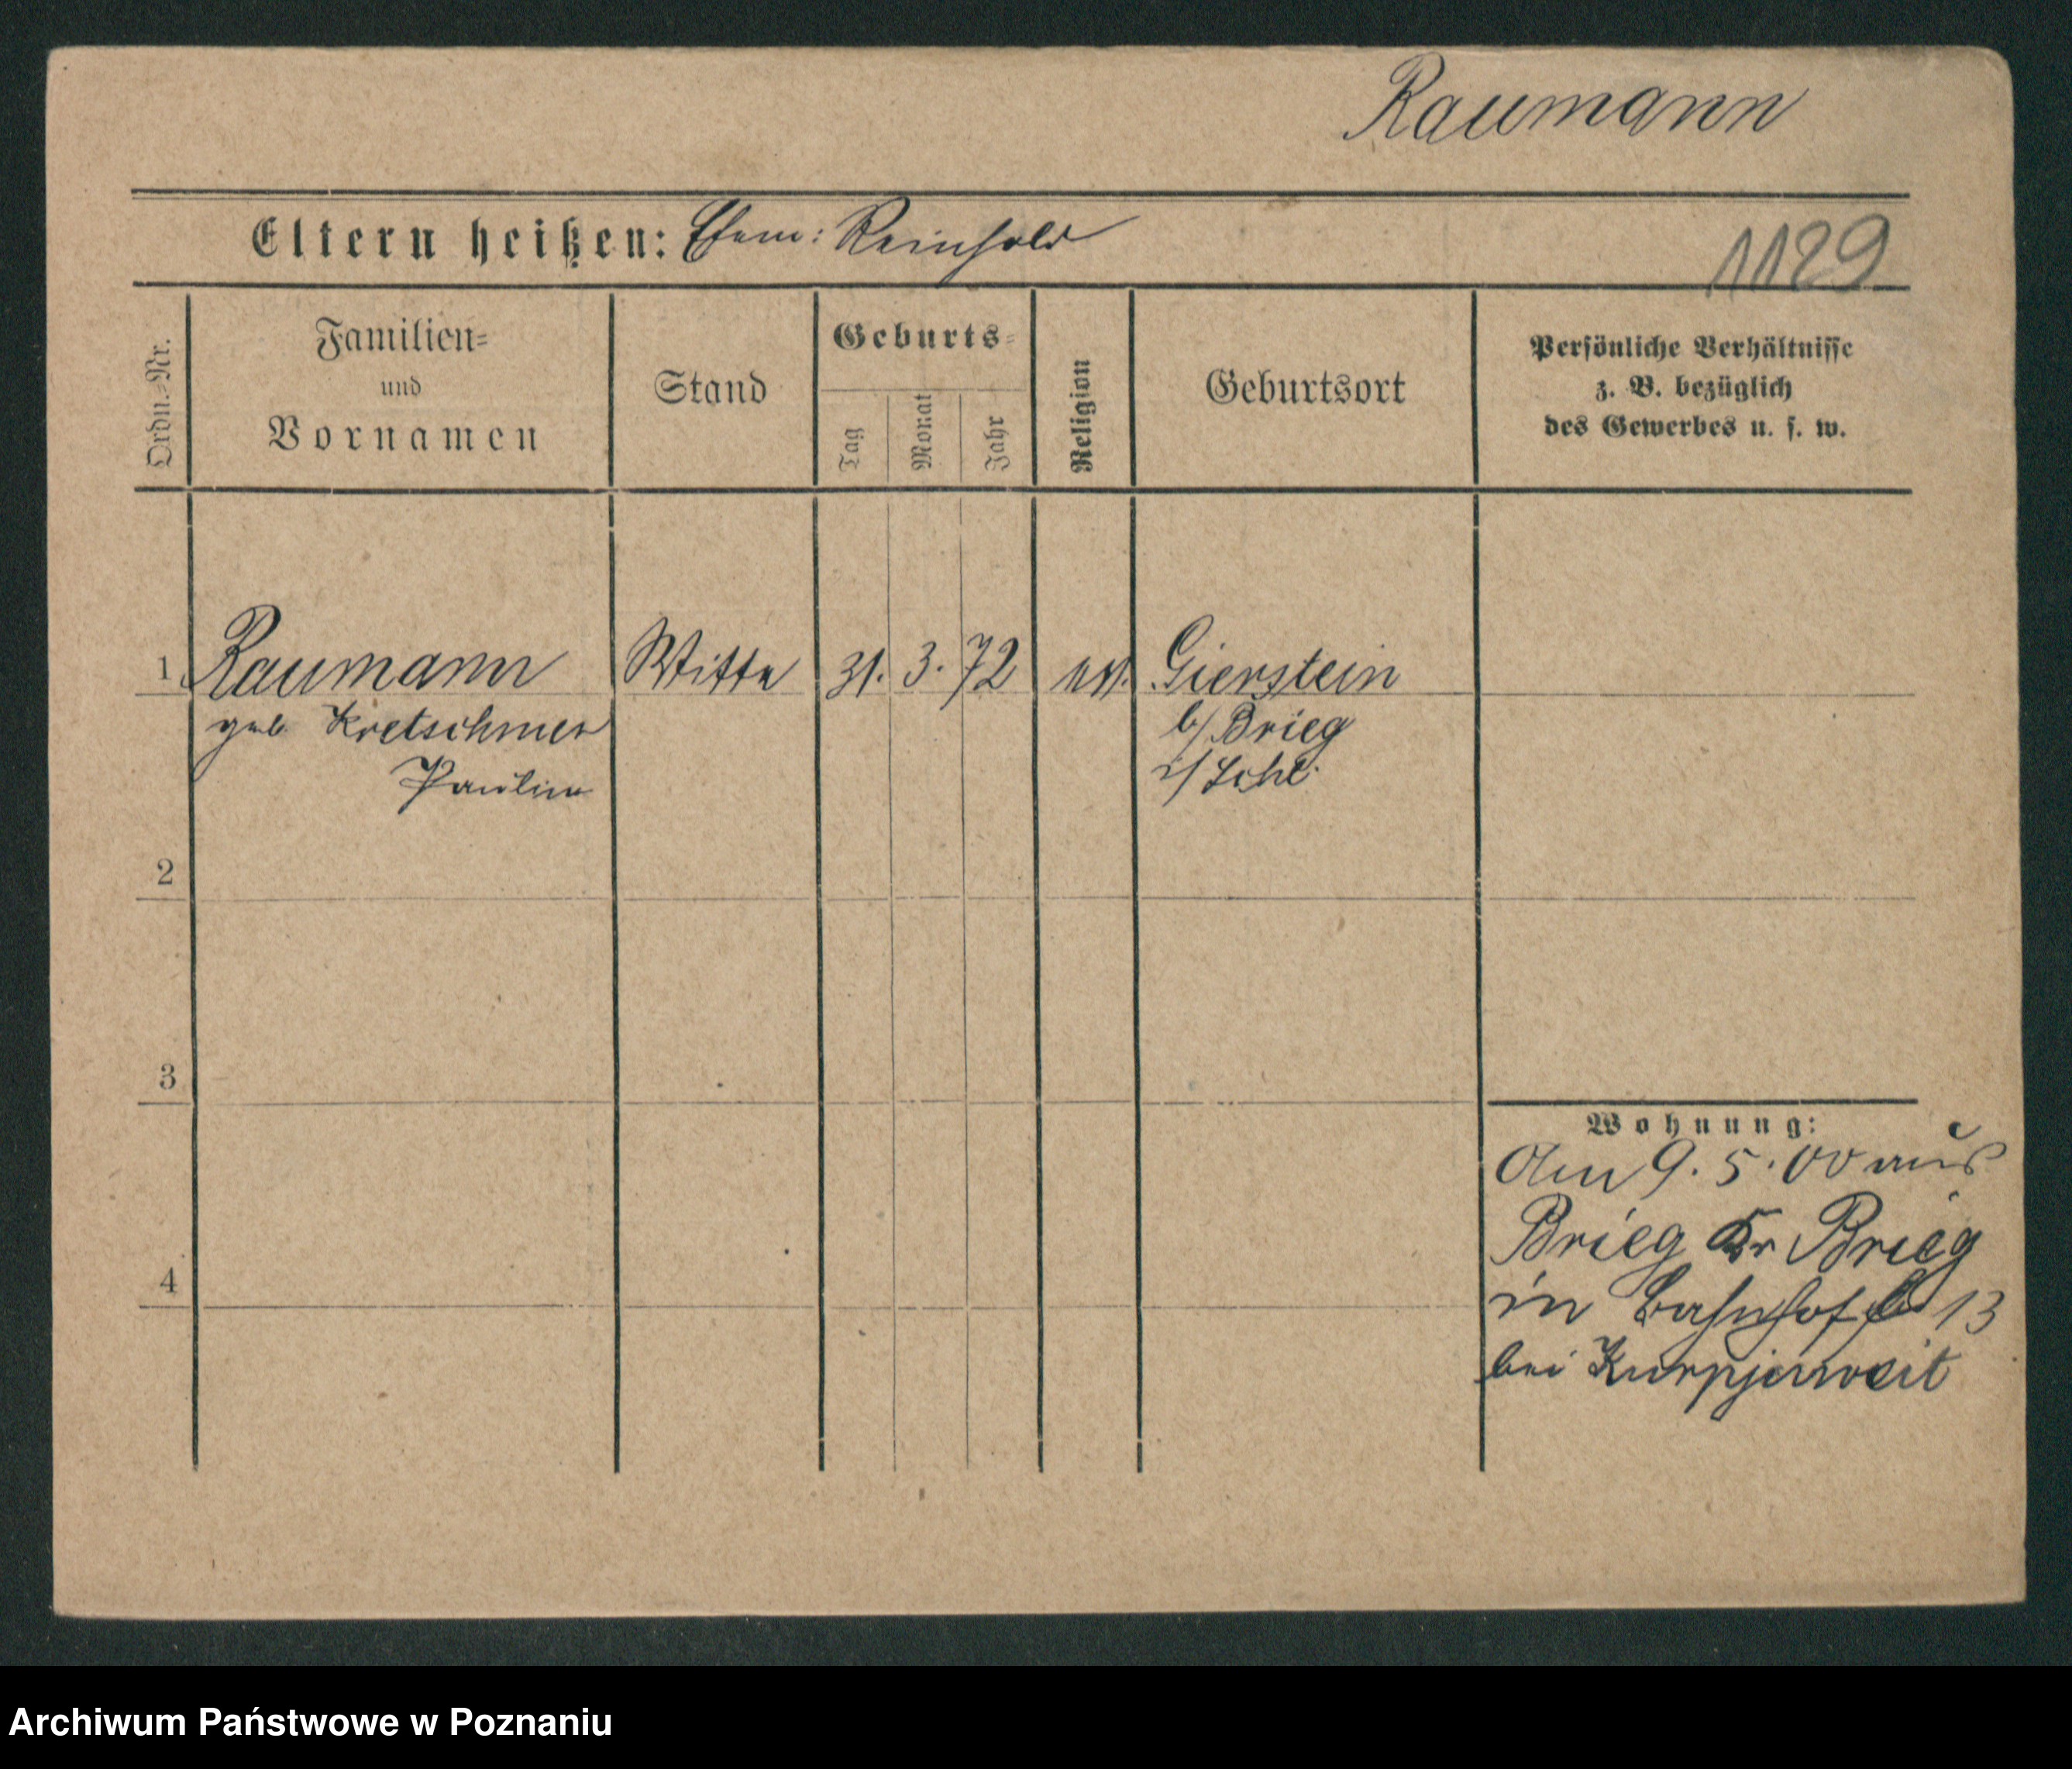 Raumann
Eltern heißen: Ehem: Reinhold
1129
Ordn.-Nr.
Familien-
und
Vornamen
Stand
Geburts-
Tag
Monat
Jahr
Religion
Geburtsort
Persönliche Verhältnisse
z. B. bezüglich
des Gewerbes u. s. w.
1 Raumann Wittw 31. 3. 72 ev. Gierstein
geb Kretschmer b/ Brieg
Paulin i/ Schl.
2
3
4
Wohnung:
Am 9. 5. 00 aus
Brieg Kr Brieg
in Bahnhof 13
bei Kurpjuweit
Archiwum Państwowe w Poznaniu